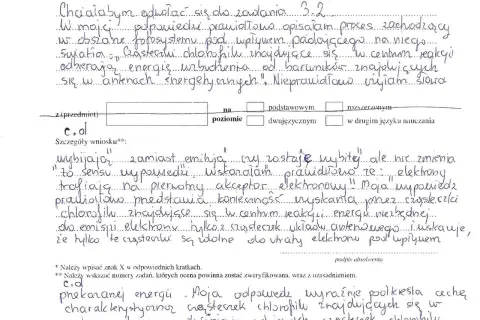 Chciałabym odwołać się do zadania 3.2
W mojej odpowiedzi prawidłowo opisałam proces zachodzący
w obszarze fotosystemu pod wpływem padającego na niego
światła: „Cząsteczki chlorofilu znajdujące się w centrum reakcji
odbierają energię wzbudzenia od barwników znajdujących
się w antenach energetycznych". Nieprawidłowo użyłam słowa
z (przedmiot) na poziomie podstawowym rozszerzonym
dwujęzycznym w drugim języku nauczania
c.d
Szczegóły wniosku**:
wybijają" zamiast emitują" czy zostaję wybite" ale nie zmienia
to sensu wypowiedzi" wskazałam prawidłowo że: „elektrony
trafiają na pierwotny akceptor elektronowy" Moja wypowiedź
prawidłowo przedstawia konieczność uzyskania przez cząsteczki
chlorofilu znajdujące się w centrum reakcji energii niezbędnej
do emisji elektronu tylko z cząsteczek układu antenowego i wskazuje,
że tylko te cząsteczki są zdolne do utraty elektronu pod wpływem
podpis absolwenta
* Należy wpisać znak X w odpowiednich kratkach.
** Należy wskazać numery zadań, których ocena powinna zostać zweryfikowana, wraz z uzasadnieniem.
c.d
przekazanej energii. Moja odpowiedź wyraźnie podkreśla cechę
charakterystyczną cząsteczek chlorofilu znajdujących się w